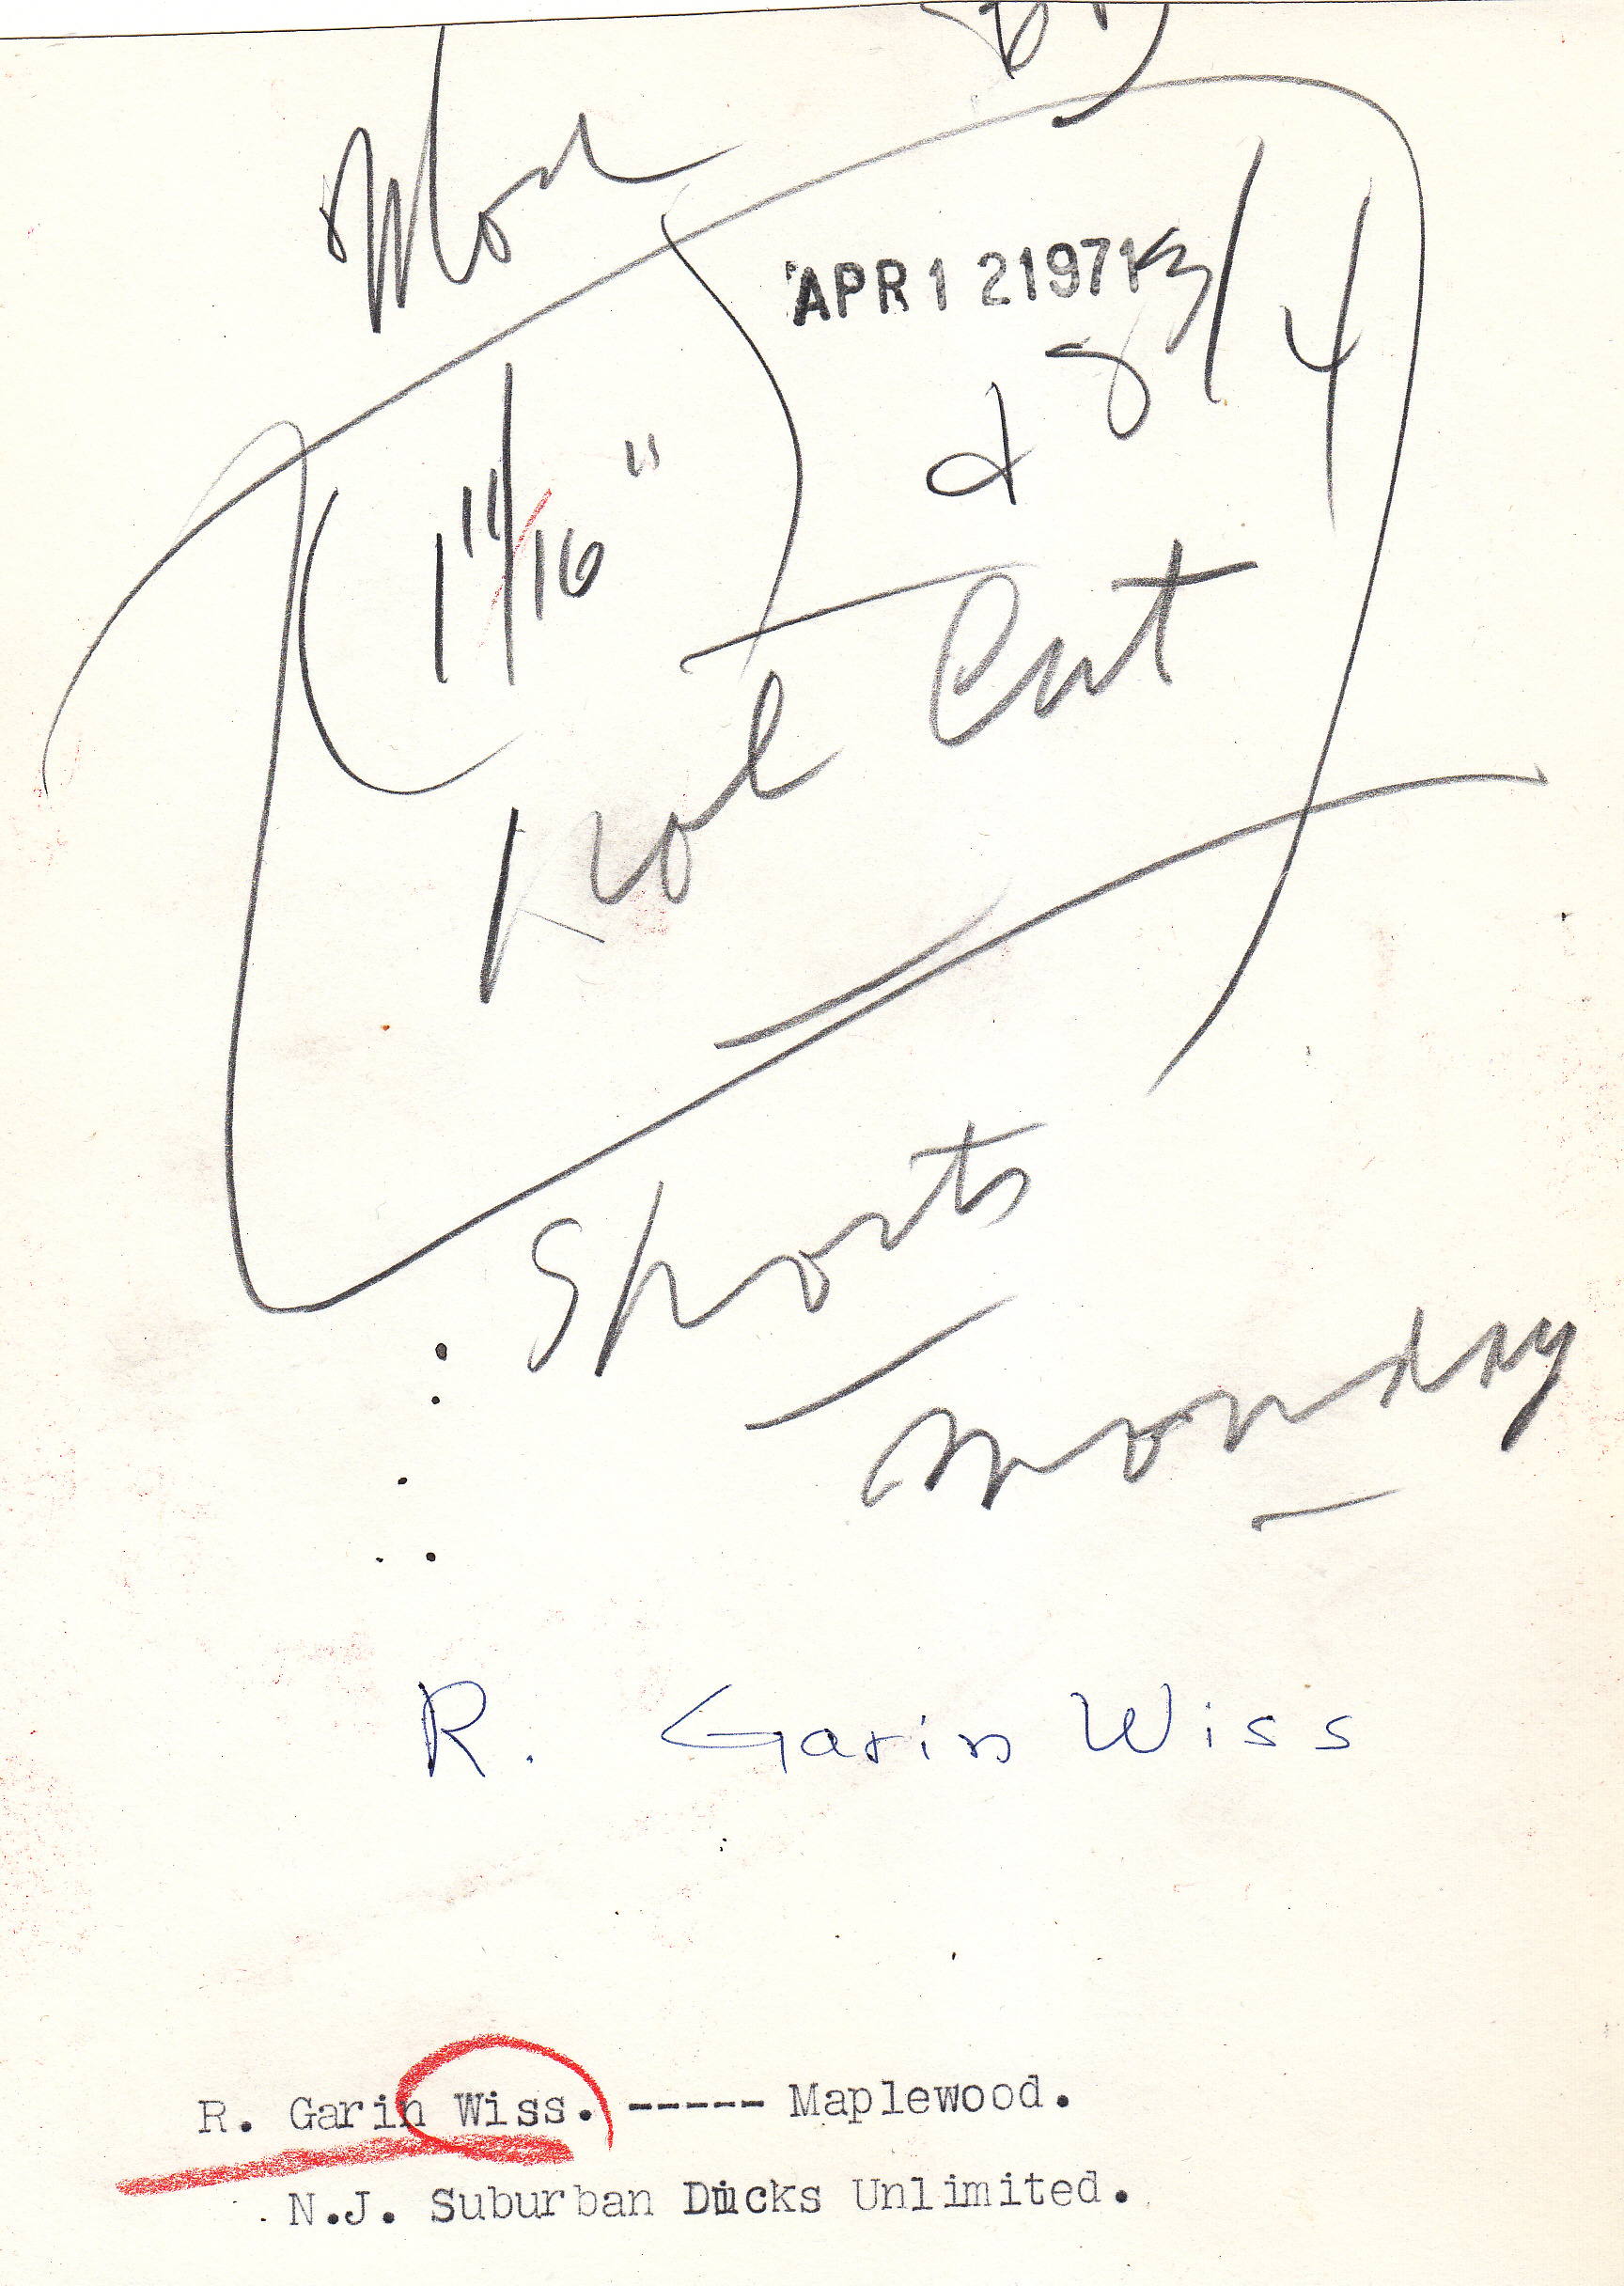 Mon
APR 12 1971
1 11/16"
& 8 3/4
Cut
Sports
Monday
R. Garin Wiss
R. Garin Wiss. ----- Maplewood.
N.J. Suburban Ducks Unlimited.